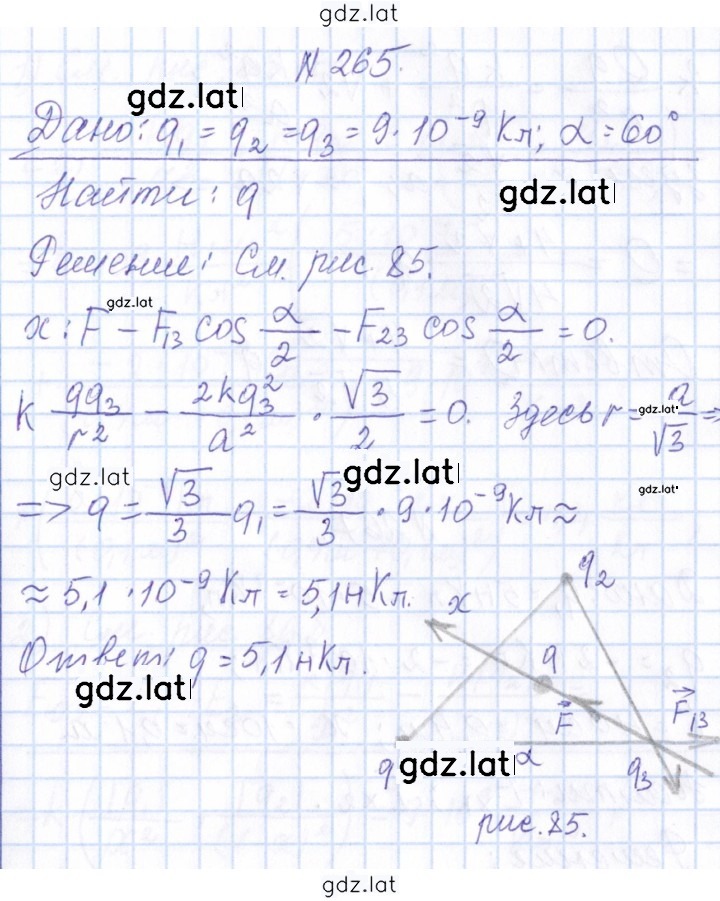 gdz.lat
N 265.
gdz.lat
Дано: q₁ = q₂ = q₃ = 9·10⁻⁹ Кл; α = 60°
Найти: q
gdz.lat
Решение: См. рис. 85.
gdz.lat
x: F − F₁₃ cos α/2 − F₂₃ cos α/2 = 0.
k qq₃/r² − 2kq₃²/a² · √3/2 = 0. Здесь r = a/√3 =>
gdz.lat
gdz.lat
gdz.lat
gdz.lat
=> q = √3/3 q₁ = √3/3 · 9·10⁻⁹ Кл ≈
≈ 5,1·10⁻⁹ Кл = 5,1 нКл.
Ответ: q = 5,1 нКл.
gdz.lat
q₂
x
q
F⃗
F⃗₁₃
q
gdz.lat
α
q₃
рис. 85.
gdz.lat